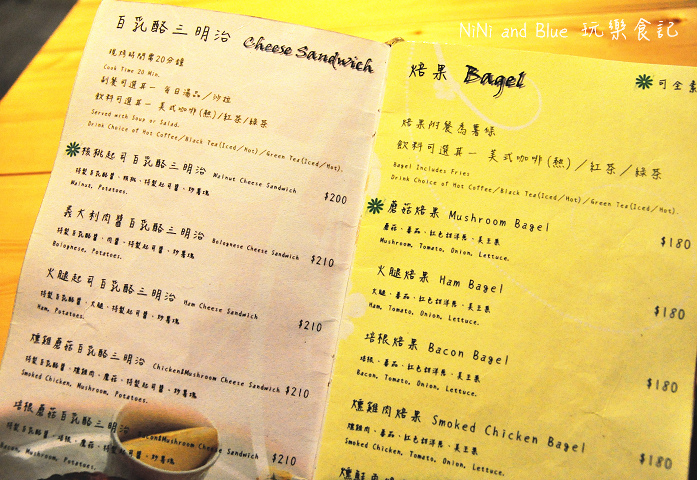 NiNi and Blue 玩樂食記
百乳酪三明治 Cheese Sandwich
現烤時間需20分鐘
Cook Time 20 Min.
副餐可選其一 每日湯品/沙拉
飲料可選其一 美式咖啡(熱)/紅茶/綠茶
Served with Soup or Salad.
Drink Choice of Hot Coffee/Black Tea(Iced/Hot)/Green Tea(Iced/Hot).
核桃起司百乳酪三明治 Walnut Cheese Sandwich $200
特製百乳酪醬、核桃、特製起司醬、炒薯塊
Walnut, Potatoes.
義大利肉醬百乳酪三明治 Bolognese Cheese Sandwich $210
特製百乳酪醬、肉醬、特製起司醬、炒薯塊
Bolognese, Potatoes.
火腿起司百乳酪三明治 Ham Cheese Sandwich $210
特製百乳酪醬、火腿、特製起司醬、炒薯塊
Ham, Potatoes.
燻雞蘑菇百乳酪三明治 Chicken&Mushroom Cheese Sandwich $210
特製百乳酪醬、燻雞肉、蘑菇、特製起司醬、炒薯塊
Smoked Chicken, Mushroom, Potatoes.
培根蘑菇百乳酪三明治 Bacon&Mushroom Cheese Sandwich $210
特製百乳酪醬、培根、蘑菇、特製起司醬、炒薯塊
Bacon, Mushroom, Potatoes.
焙果 Bagel
可全素
焙果附餐為薯條
飲料可選其一 美式咖啡(熱)/紅茶/綠茶
Bagel Includes Fries
Drink Choice of Hot Coffee/Black Tea(Iced/Hot)/Green Tea(Iced/Hot).
蘑菇焙果 Mushroom Bagel $180
蘑菇、番茄、紅色甜洋蔥、美生菜
Mushroom, Tomato, Onion, Lettuce.
火腿焙果 Ham Bagel $180
火腿、番茄、紅色甜洋蔥、美生菜
Ham, Tomato, Onion, Lettuce.
培根焙果 Bacon Bagel $180
培根、番茄、紅色甜洋蔥、美生菜
Bacon, Tomato, Onion, Lettuce.
燻雞肉焙果 Smoked Chicken Bagel $180
燻雞肉、番茄、紅色甜洋蔥、美生菜
Smoked Chicken, Tomato, Onion, Lettuce.